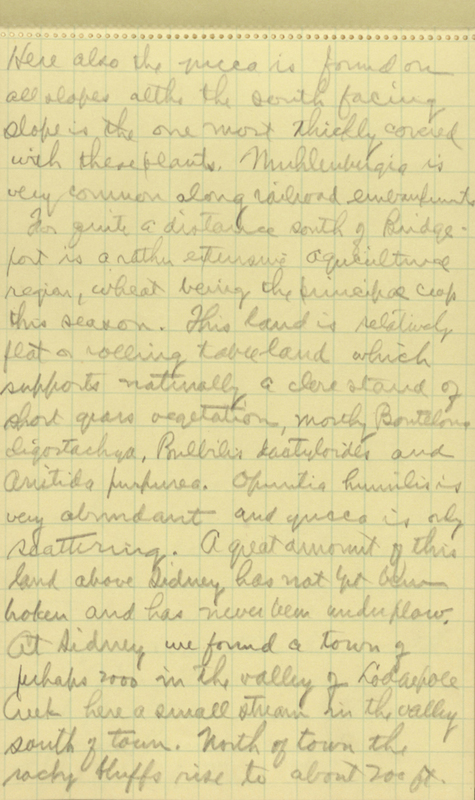 Here also the yucca is found on
all slopes altho the south facing
slope is the one most thickly covered
with these plants. Muhlenbergia is
very common along railroad embankments
For quite a distance south of Bridge-
port is a rather extensive agricultural
region, wheat being the principal crop
this season. This land is relatively
flat or rolling tableland which
supports naturally a close stand of
short grass vegetation, mostly Bouteloua
oligostachya, Bulbilis dactyloides and
Aristida purpurea. Opuntia humilis is
very abundant and yucca is only
scattering. A great amount of this
land above Sidney has not yet been
broken and has never been under plow.
At Sidney we found a town of
perhaps 2000 in the valley of Lodgepole
Creek here a small stream in the valley
south of town. North of town the
rocky bluffs rise to about 200 ft.